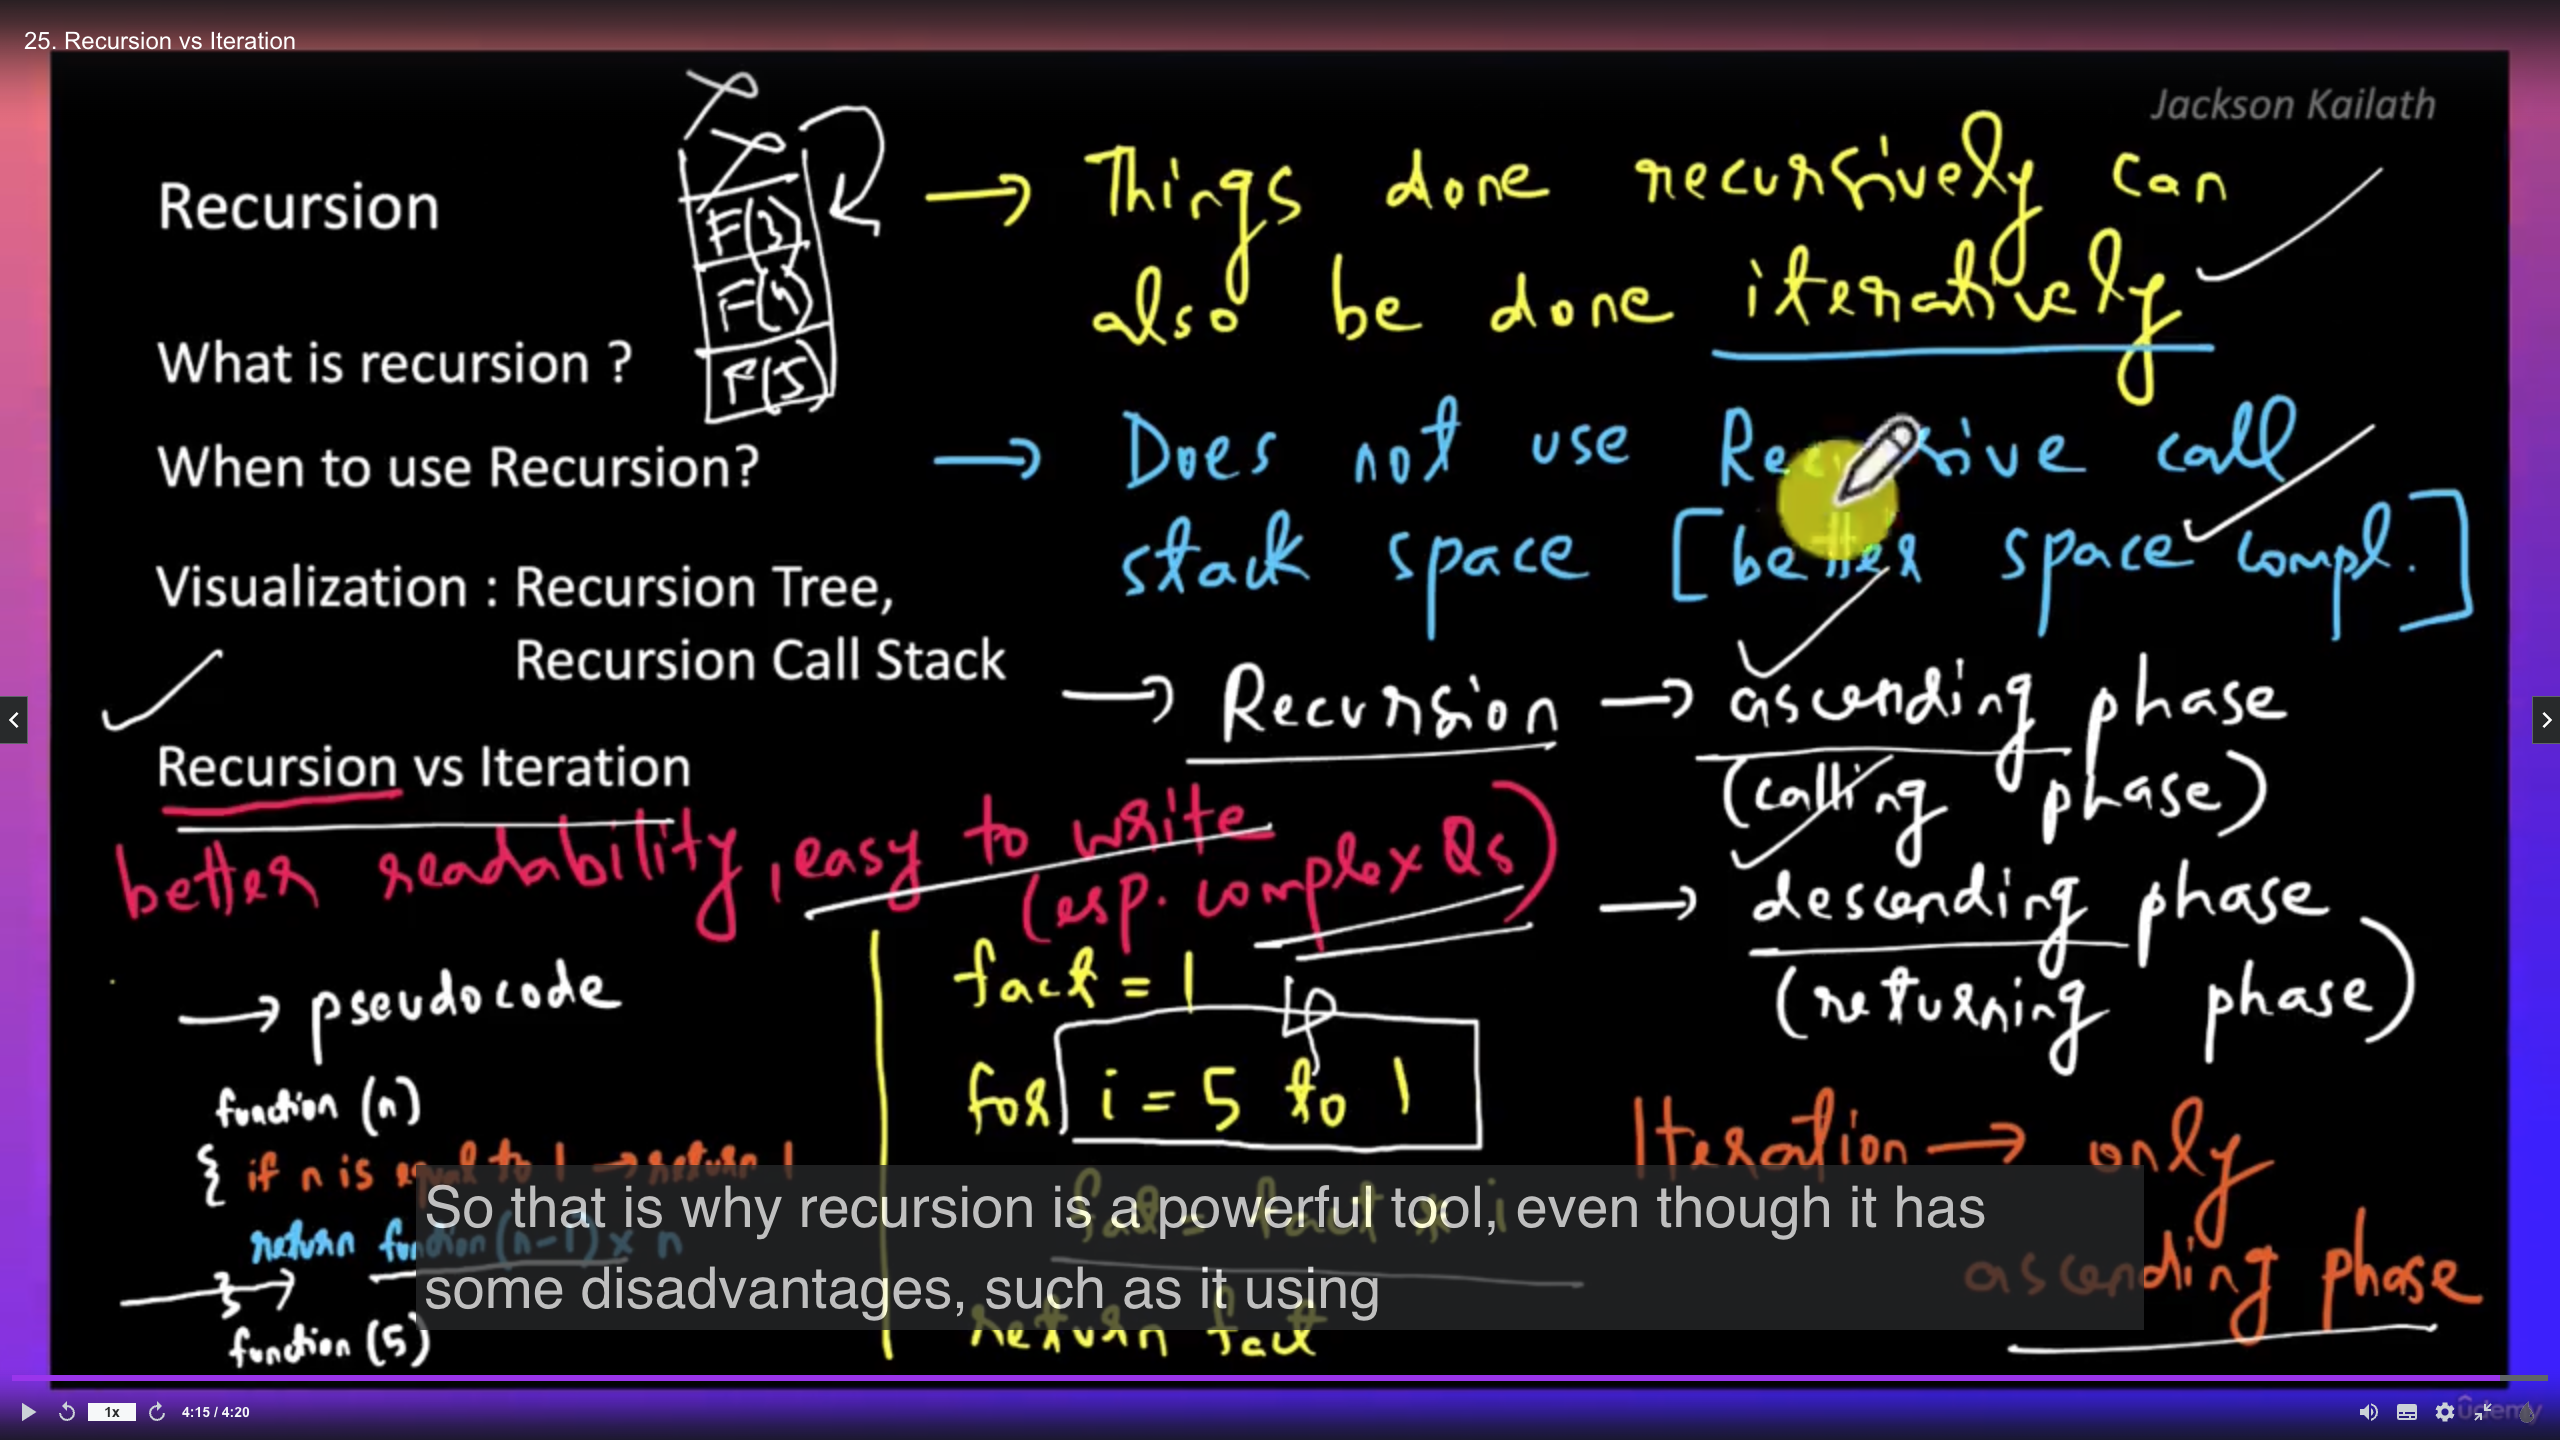 25. Recursion vs Iteration
Jackson Kailath
Recursion
What is recursion ?
When to use Recursion?
Visualization : Recursion Tree,
Recursion Call Stack
Recursion vs Iteration
better readability, easy to write
(esp. complex Qs)
F(3)
F(4)
F(5)
→ Things done recursively can
also be done iteratively
→ Does not use Recursive call
stack space [better space compl.]
→ Recursion → ascending phase
(calling phase)
→ descending phase
(returning phase)
Iteration → only
ascending phase
→ pseudocode
function (n)
{ if n is equal to 1 → return 1
return function (n-1) x n
}
function (5)
fact = 1
for i = 5 to 1
fact = fact * i
return fact
So that is why recursion is a powerful tool, even though it has
some disadvantages, such as it using
1x
4:15 / 4:20
ûdemy